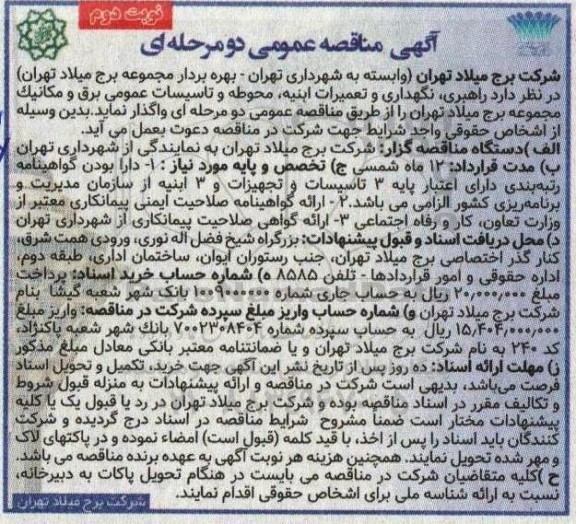 نوبت دوم
آگهی مناقصه عمومی دو مرحله ای
شرکت برج میلاد تهران (وابسته به شهرداری تهران - بهره بردار مجموعه برج میلاد تهران)
در نظر دارد راهبری، نگهداری و تعمیرات ابنیه، محوطه و تاسیسات عمومی برق و مکانیک
مجموعه برج میلاد تهران را از طریق مناقصه عمومی دو مرحله ای واگذار نماید.بدین وسیله
از اشخاص حقوقی واجد شرایط جهت شرکت در مناقصه دعوت بعمل می آید.
الف )دستگاه مناقصه گزار: شرکت برج میلاد تهران به نمایندگی از شهرداری تهران
ب) مدت قرارداد: ۱۲ ماه شمسی ج) تخصص و پایه مورد نیاز : ۱- دارا بودن گواهینامه
رتبه‌بندی دارای اعتبار پایه ۳ تاسیسات و تجهیزات و ۳ ابنیه از سازمان مدیریت و
برنامه‌ریزی کشور الزامی می باشد.۲ - ارائه گواهینامه صلاحیت ایمنی پیمانکاری معتبر از
وزارت تعاون، کار و رفاه اجتماعی ۳- ارائه گواهی صلاحیت پیمانکاری از شهرداری تهران
د) محل دریافت اسناد و قبول پیشنهادات: بزرگراه شیخ فضل اله نوری، ورودی همت شرق،
کنار گذر اختصاصی برج میلاد تهران، جنب رستوران ایوان، ساختمان اداری، طبقه دوم،
اداره حقوقی و امور قراردادها - تلفن ۸۵۸۵ ه) شماره حساب خرید اسناد: پرداخت
مبلغ ۲۰,۰۰۰,۰۰۰ ریال به حساب جاری شماره بانک شهر شعبه گیشا بنام
شرکت برج میلاد تهران و) شماره حساب واریز مبلغ سپرده شرکت در مناقصه: واریز مبلغ
۱۵,۴۰۴,۰۰۰,۰۰۰ ریال به حساب سپرده شماره ۷۰۰۲۳۰۸۴۰۴ بانک شهر شعبه پاکنژاد،
کد ۲۴۰ به نام شرکت برج میلاد تهران و یا ضمانتنامه معتبر بانکی معادل مبلغ مذکور
ز) مهلت ارائه اسناد: ده روز پس از تاریخ نشر این آگهی جهت خرید، تکمیل و تحویل اسناد
فرصت می‌باشد، بدیهی است شرکت در مناقصه و ارائه پیشنهادات به منزله قبول شروط
و تکالیف مقرر در اسناد مناقصه بوده و شرکت برج میلاد تهران در رد یا قبول یک یا کلیه
پیشنهادات مختار است ضمناً مشروح شرایط مناقصه در اسناد درج گردیده و شرکت
کنندگان باید اسناد را پس از اخذ، با قید کلمه (قبول است) امضاء نموده و در پاکتهای لاک
و مهر شده تحویل نمایند. همچنین هزینه هر نوبت آگهی به عهده برنده مناقصه می باشد.
ح )کلیه متقاضیان شرکت در مناقصه می بایست در هنگام تحویل پاکات به دبیرخانه،
نسبت به ارائه شناسه ملی برای اشخاص حقوقی اقدام نمایند.
شرکت برج میلاد تهران